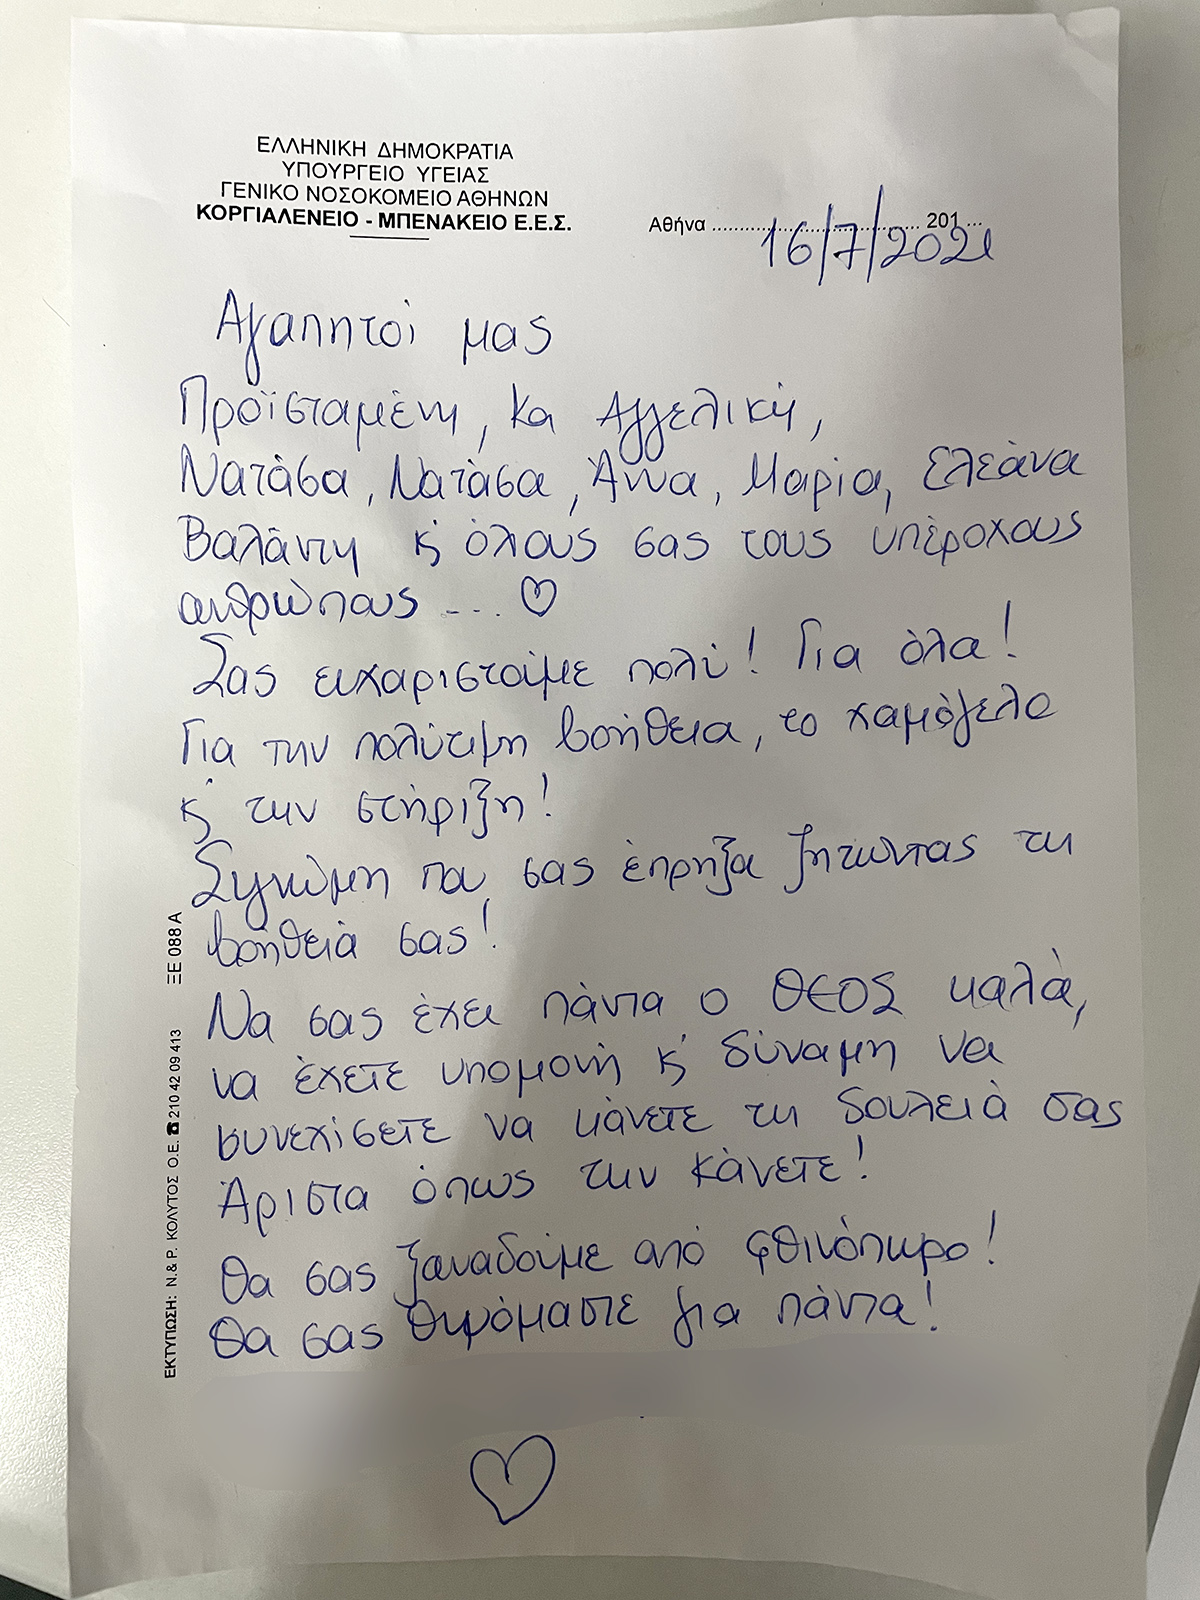 ΕΛΛΗΝΙΚΗ ΔΗΜΟΚΡΑΤΙΑ
ΥΠΟΥΡΓΕΙΟ ΥΓΕΙΑΣ
ΓΕΝΙΚΟ ΝΟΣΟΚΟΜΕΙΟ ΑΘΗΝΩΝ
ΚΟΡΓΙΑΛΕΝΕΙΟ - ΜΠΕΝΑΚΕΙΟ Ε.Ε.Σ.
Αθήνα .......................................... 201....
16/7/2021
Αγαπητοί μας
Προϊσταμένη, κα Αγγελική,
Νατάσα, Νατάσα, Άννα, Μαρία, Ελεάνα
Βαλάντη κ' όλους σας τους υπέροχους
ανθρώπους ... ♡
Σας ευχαριστούμε πολύ! Για όλα!
Για την πολύτιμη βοήθεια, το χαμόγελο
κ' την στήριξη!
Συγνώμη που σας έπρηξα ζητώντας τη
βοήθειά σας!
Να σας έχει πάντα ο ΘΕΟΣ καλά,
να έχετε υπομονή κ' δύναμη να
συνεχίσετε να κάνετε τη δουλειά σας
Άριστα όπως την κάνετε!
Θα σας ξαναδούμε από φθινόπωρο!
Θα σας θυμόμαστε για πάντα!
♡
ΕΚΤΥΠΩΣΗ: Ν.& Ρ. ΚΟΛΥΤΟΣ Ο.Ε. ☎ 210 42 09 413 ΞΕ 088 Α